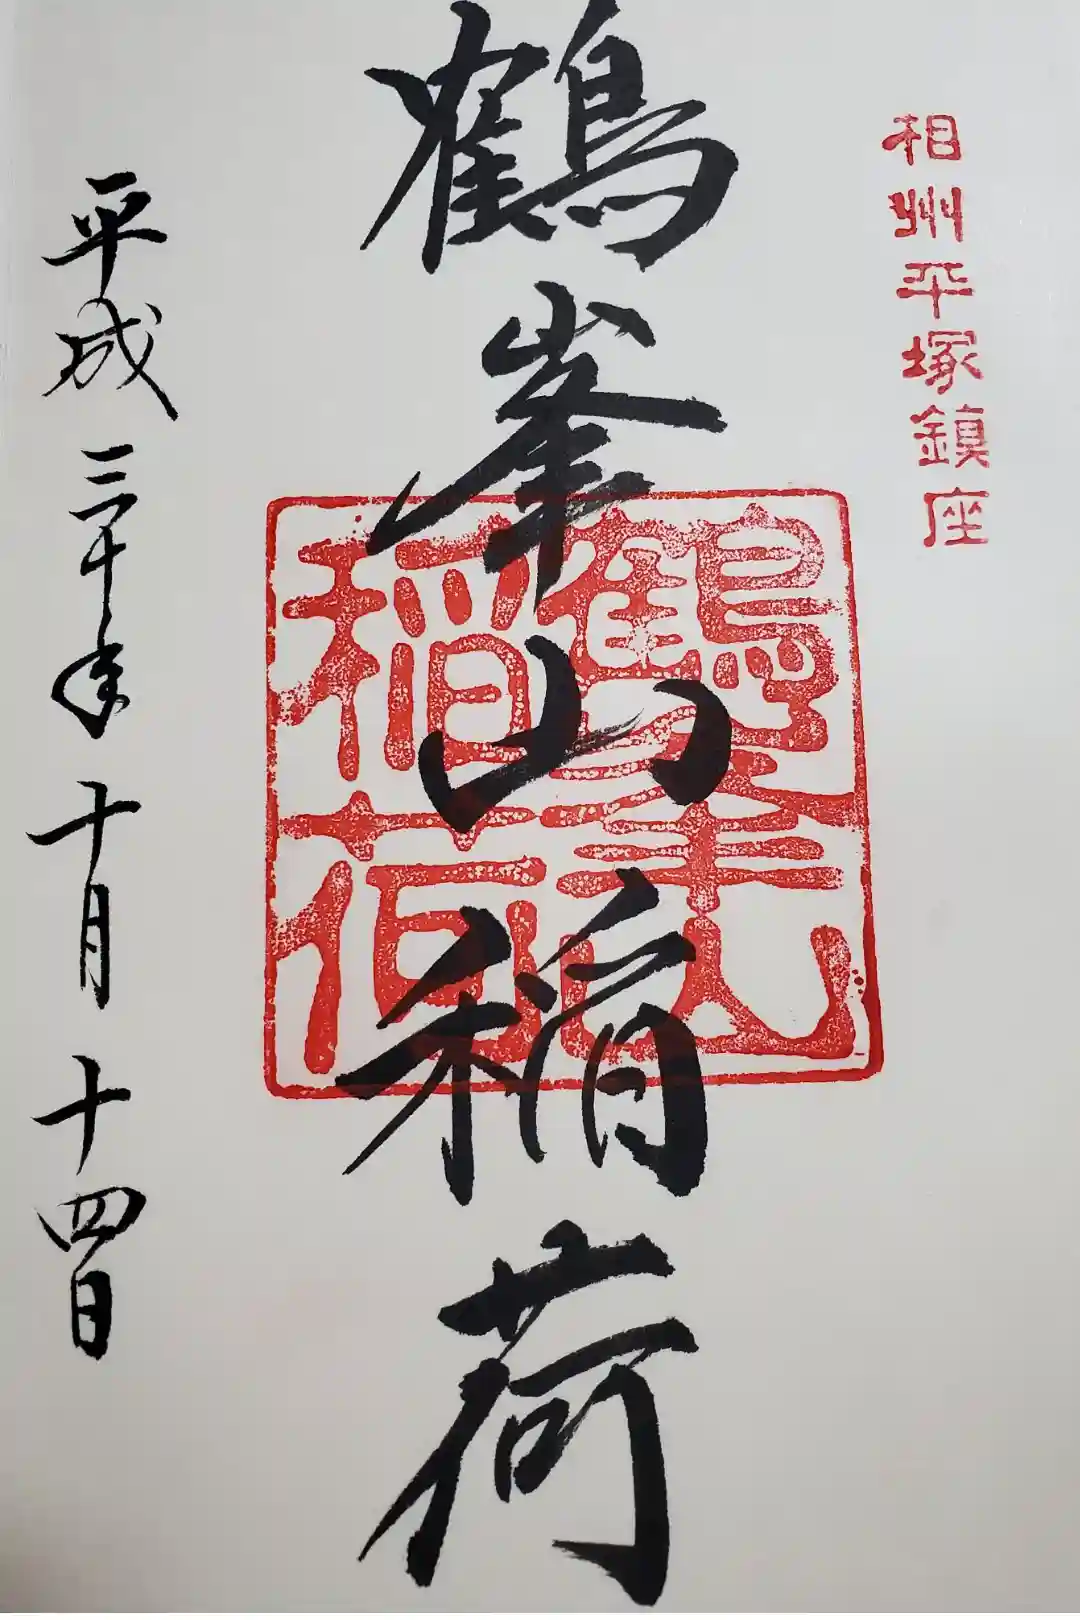 相州平塚鎮座
鶴峯山稲荷
鶴峯山
稲荷
平成三十年十月十四日